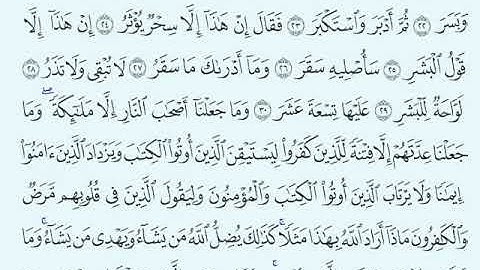 وَبَسَرَ ﴿٢٢﴾ ثُمَّ أَدْبَرَ وَٱسْتَكْبَرَ ﴿٢٣﴾ فَقَالَ إِنْ هَٰذَآ إِلَّا سِحْرٌ يُؤْثَرُ ﴿٢٤﴾ إِنْ هَٰذَآ إِلَّا
قَوْلُ ٱلْبَشَرِ ﴿٢٥﴾ سَأُصْلِيهِ سَقَرَ ﴿٢٦﴾ وَمَآ أَدْرَىٰكَ مَا سَقَرُ ﴿٢٧﴾ لَا تُبْقِى وَلَا تَذَرُ ﴿٢٨﴾
لَوَّاحَةٌ لِّلْبَشَرِ ﴿٢٩﴾ عَلَيْهَا تِسْعَةَ عَشَرَ ﴿٣٠﴾ وَمَا جَعَلْنَآ أَصْحَٰبَ ٱلنَّارِ إِلَّا مَلَٰٓئِكَةً ۙ وَمَا
جَعَلْنَا عِدَّتَهُمْ إِلَّا فِتْنَةً لِّلَّذِينَ كَفَرُوا۟ لِيَسْتَيْقِنَ ٱلَّذِينَ أُوتُوا۟ ٱلْكِتَٰبَ وَيَزْدَادَ ٱلَّذِينَ ءَامَنُوٓا۟
إِيمَٰنًا وَلَا يَرْتَابَ ٱلَّذِينَ أُوتُوا۟ ٱلْكِتَٰبَ وَٱلْمُؤْمِنُونَ وَلِيَقُولَ ٱلَّذِينَ فِى قُلُوبِهِم مَّرَضٌ
وَٱلْكَٰفِرُونَ مَاذَآ أَرَادَ ٱللَّهُ بِهَٰذَا مَثَلًا ۚ كَذَٰلِكَ يُضِلُّ ٱللَّهُ مَن يَشَآءُ وَيَهْدِى مَن يَشَآءُ ۚ وَمَا